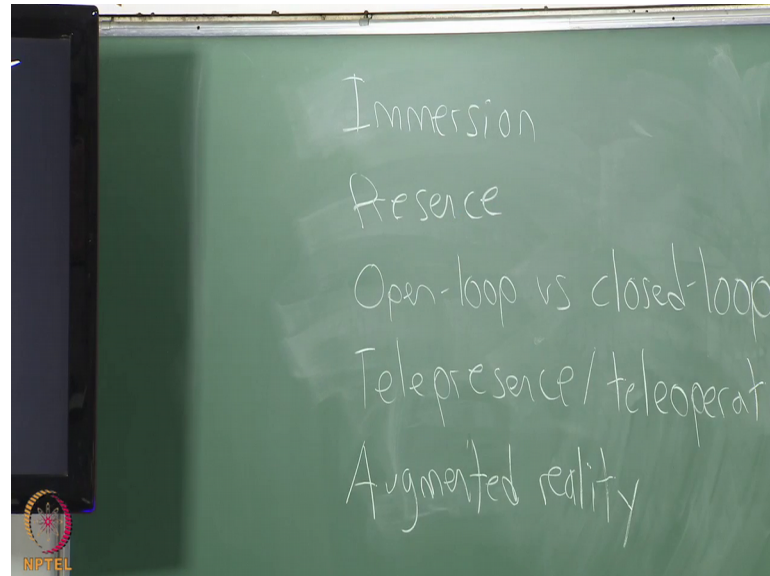 Immersion
Presence
Open-loop vs closed-loop
Telepresence/teleoperat
Augmented reality
NPTEL